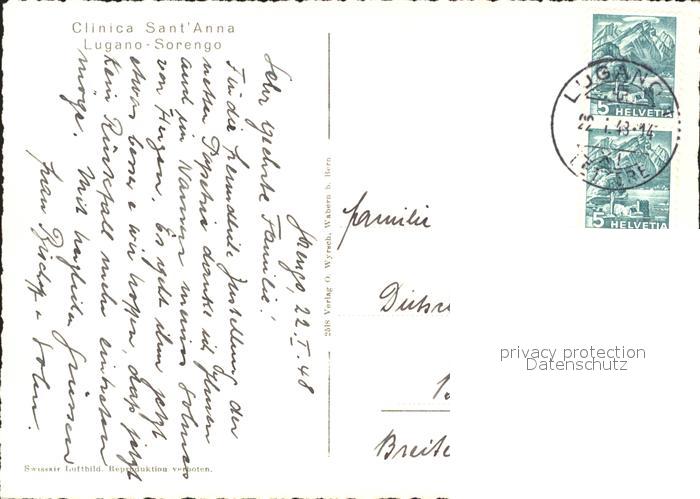 Clinica Sant'Anna
Lugano-Sorengo
Sorengo, 22. I. 48
Sehr geehrte Familie!
Für die freundliche Zustellung der
netten danke ich Ihnen
auch im Namen meines Sohnes
von Herzen. Es geht ihm jetzt
etwas besser & wir hoffen, dass jetzt
kein Rückfall mehr eintreten
möge. Mit herzlichen Grüssen
Frau Bischof & Sohn.
2518 Verlag O. Wyrsch, Wabern b. Bern
Swissair Luftbild. Reproduktion verboten.
Familie
Breite
LUGANO
22. I. 48-14
LETTERE
5
HELVETIA
5
HELVETIA
privacy protection
Datenschutz